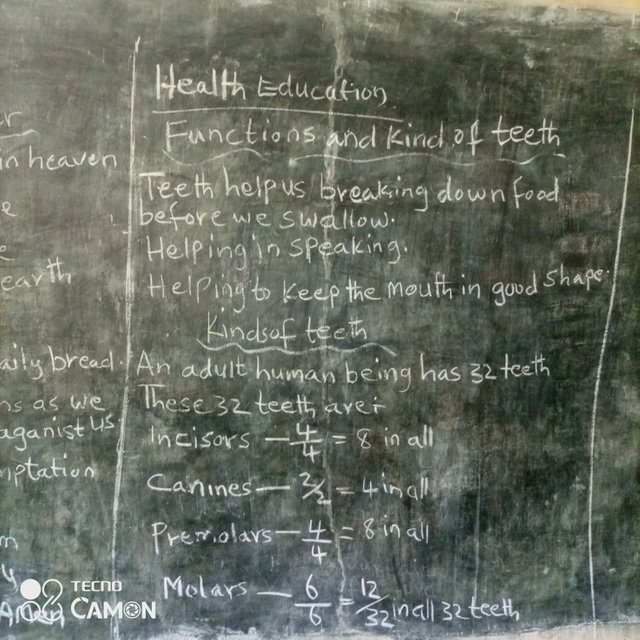 r
in heaven
e
e
earth
aily bread.
ns as we
aganist us
mptation
m
y
Amen
Health Education
Functions and Kind of teeth
Teeth help us breaking down food
before we swallow.
Helping in speaking.
Helping to keep the mouth in good shape.
Kinds of teeth
An adult human being has 32 teeth
These 32 teeth are:
Incisors — 4/4 = 8 in all
Canines — 2/2 = 4 in all
Premolars — 4/4 = 8 in all
Molars — 6/6 = 12/32 in all 32 teeth
TECNO
CAMON